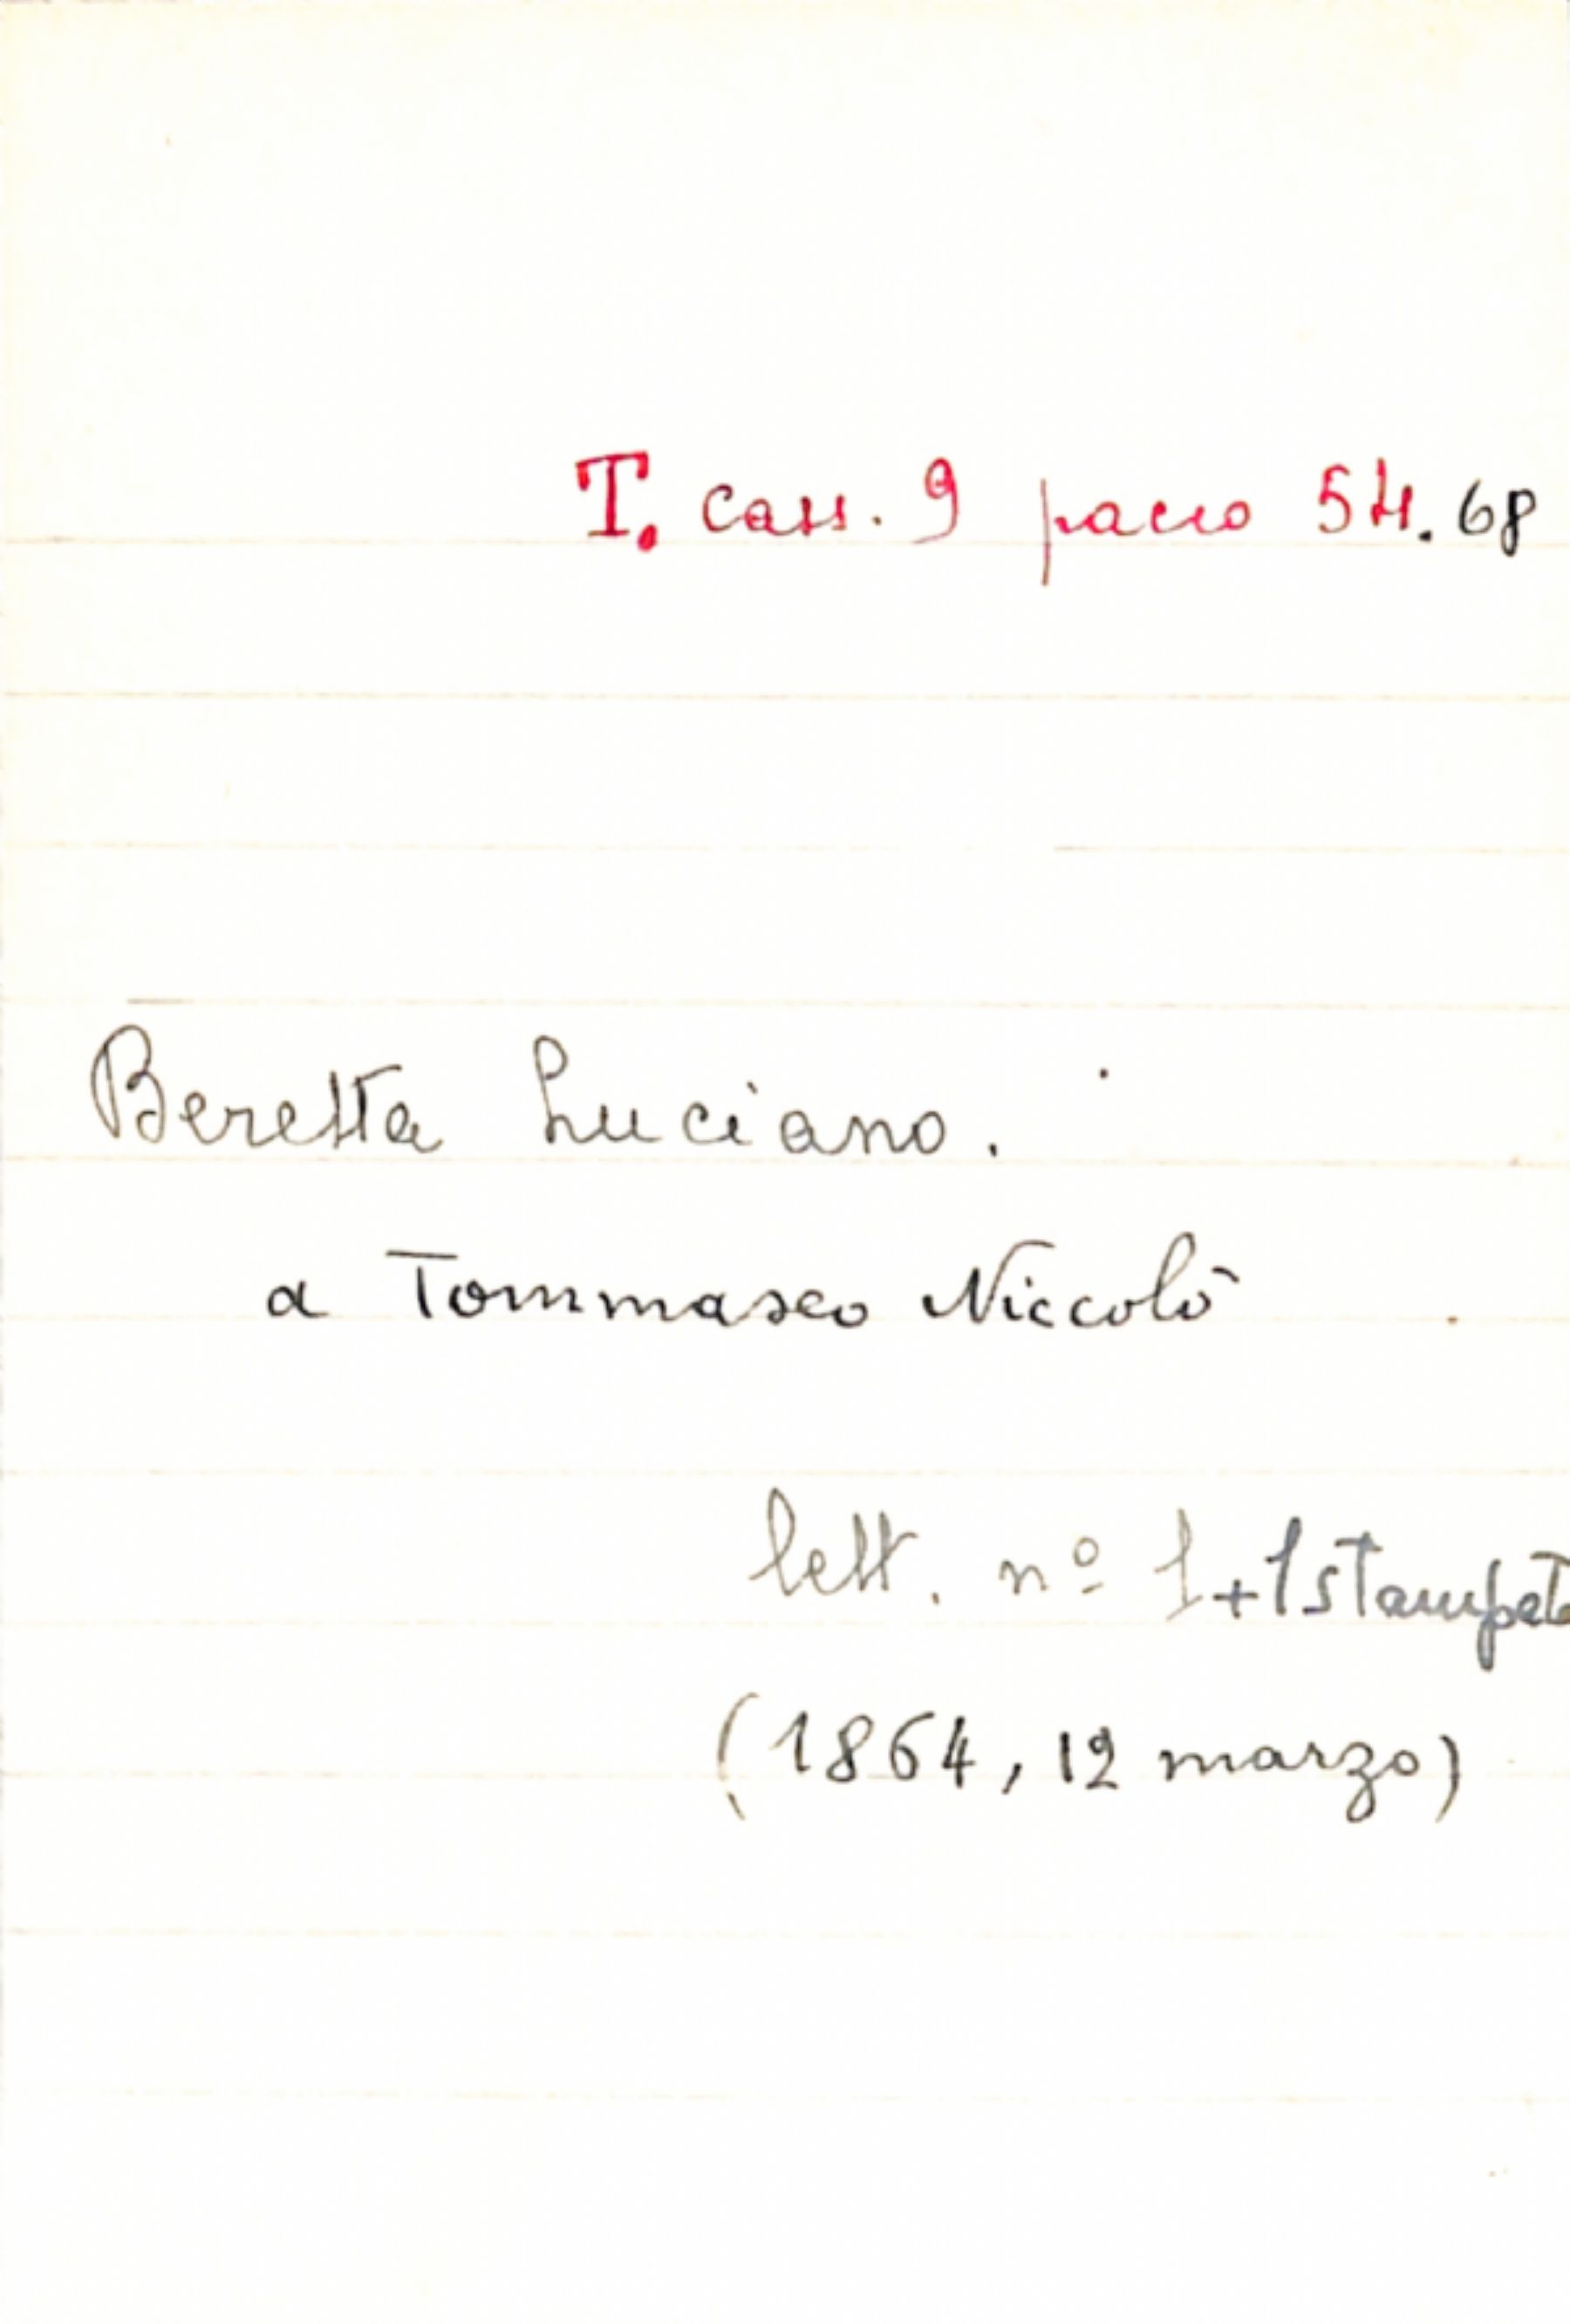 T. cass. 9 pacco 54.68
Beretta Luciano.
a Tommaseo Niccolò
lett. nº 1+1 stampata
(1864, 12 marzo)